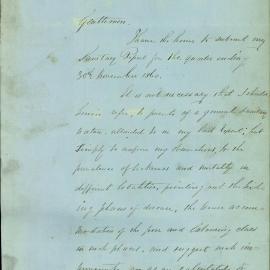 Gentlemen.
I have the honor to submit my
Sanitary Report for the quarter ending
30th November 1860.
It is not necessary that I should
refer to points of a general sanitary
nature, alluded to in my last Report; but
simply to confine my observations, to the
prevalence of sickness and mortality in
different localities, pointing out the
phases of disease, the house accom-
modation of the poor and labouring class
in such places, and suggest such im-
provements as are calculated to